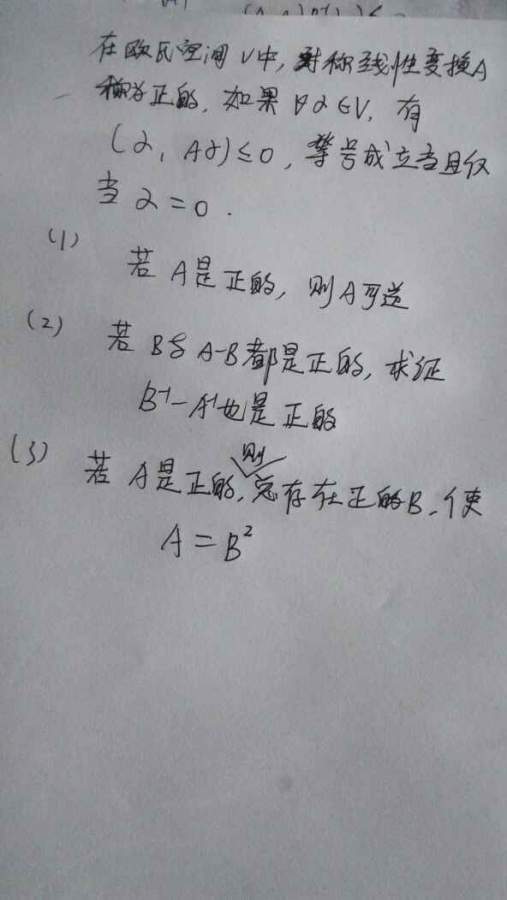 在欧氏空间V中, 对称线性变换A
称为正的, 如果∀α∈V, 有
(α, Aα)≤0, 等号成立当且仅
当α=0.
(1) 若A是正的, 则A可逆
(2) 若B与A-B都是正的, 求证
B⁻¹-A⁻¹也是正的
(3) 若A是正的, 则总存在正的B, 使
A=B²